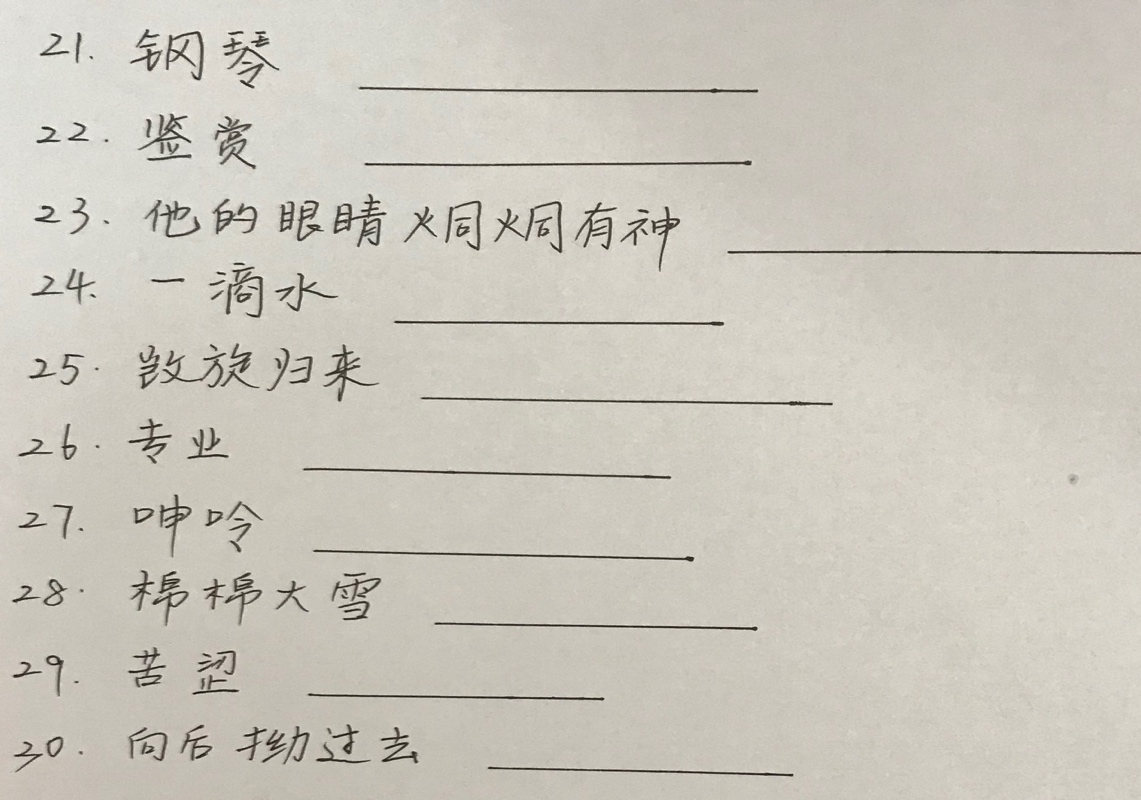 21. 钢琴
22. 鉴赏
23. 他的眼睛炯炯有神
24. 一滴水
25. 旋归来
26. 专业
27. 呻呤
28. 棉棉大雪
29. 苦涩
30. 向后拗过去